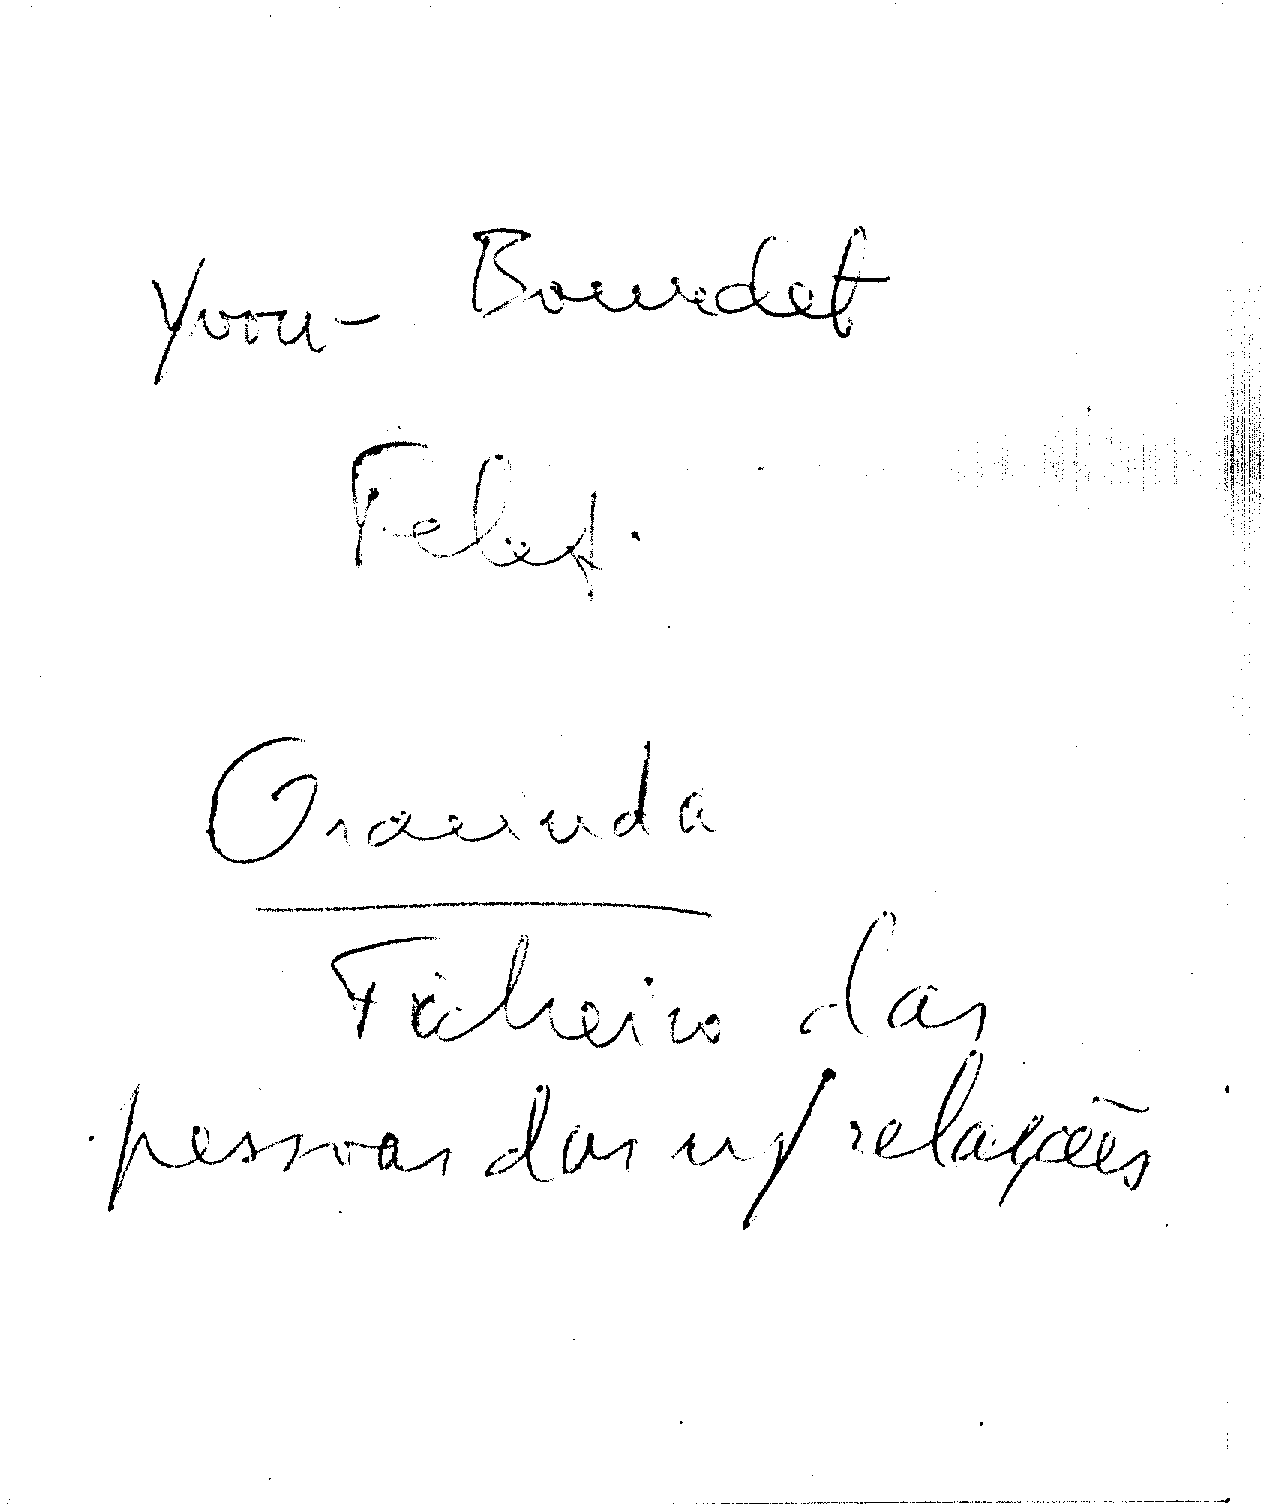 Yvon - Bourdet
Telef.
Gracinda
Ficheiro das
pessoas das m/ relações